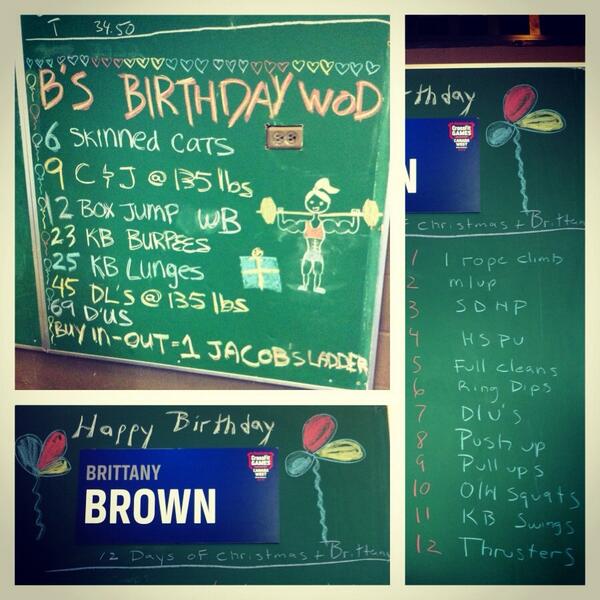 T 34.50
B'S BIRTHDAY WOD
6 SKINNED CATS
9 C & J @ 135 lbs
12 BOX JUMP WB
23 KB BURPEES
25 KB LUNGES
45 DL'S @ 135 lbs
69 D'US
BUY IN-OUT = 1 JACOB'S LADDER
Happy Birthday
BRITTANY
BROWN
CrossFit
GAMES
CANADA
WEST
12 Days of Christmas + Brittan
rthday
N
CrossFit
GAMES
CANADA
WEST
f Christmas + Brittan
1 1 rope climb
2 m/up
3 SDHP
4 HSPU
5 Full cleans
6 Ring Dips
7 D/U's
8 Push up
9 Pull ups
10 O/H Squats
11 KB Swings
12 Thrusters